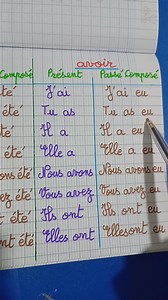 avoir
Composé Présent Passé Composé
été J'ai J'ai eu
été Tu as Tu as eu
été Il a Il a eu
été Elle a Elle a eu
été Nous avons Nous avons eu
été Vous avez Vous avez eu
t été Ils ont Ils ont eu
nt été Elles ont Elles ont eu